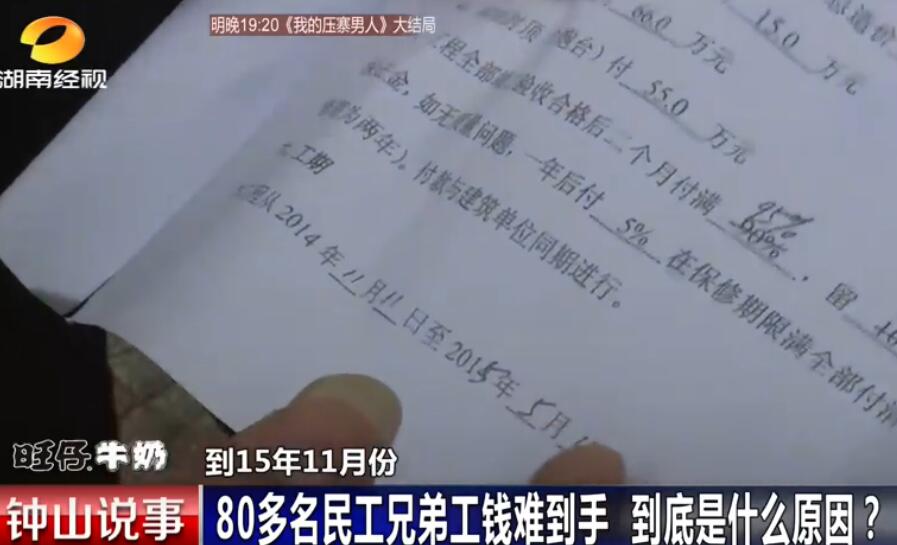 明晚19:20《我的压寨男人》大结局
湖南经视
总造价
66.0 万元 15.0 万元
炮台）付 55.0 万元
程全部 验收合格后二个月付满 95% 60%，留
金，如无 问题，一年后付 5% 在保修期限满全部付清
为两年）。付款与建筑单位同期进行。
工期
从2014年11月11日至2015年5月
旺仔牛奶
到15年11月份
钟山说事
80多名民工兄弟工钱难到手 到底是什么原因？